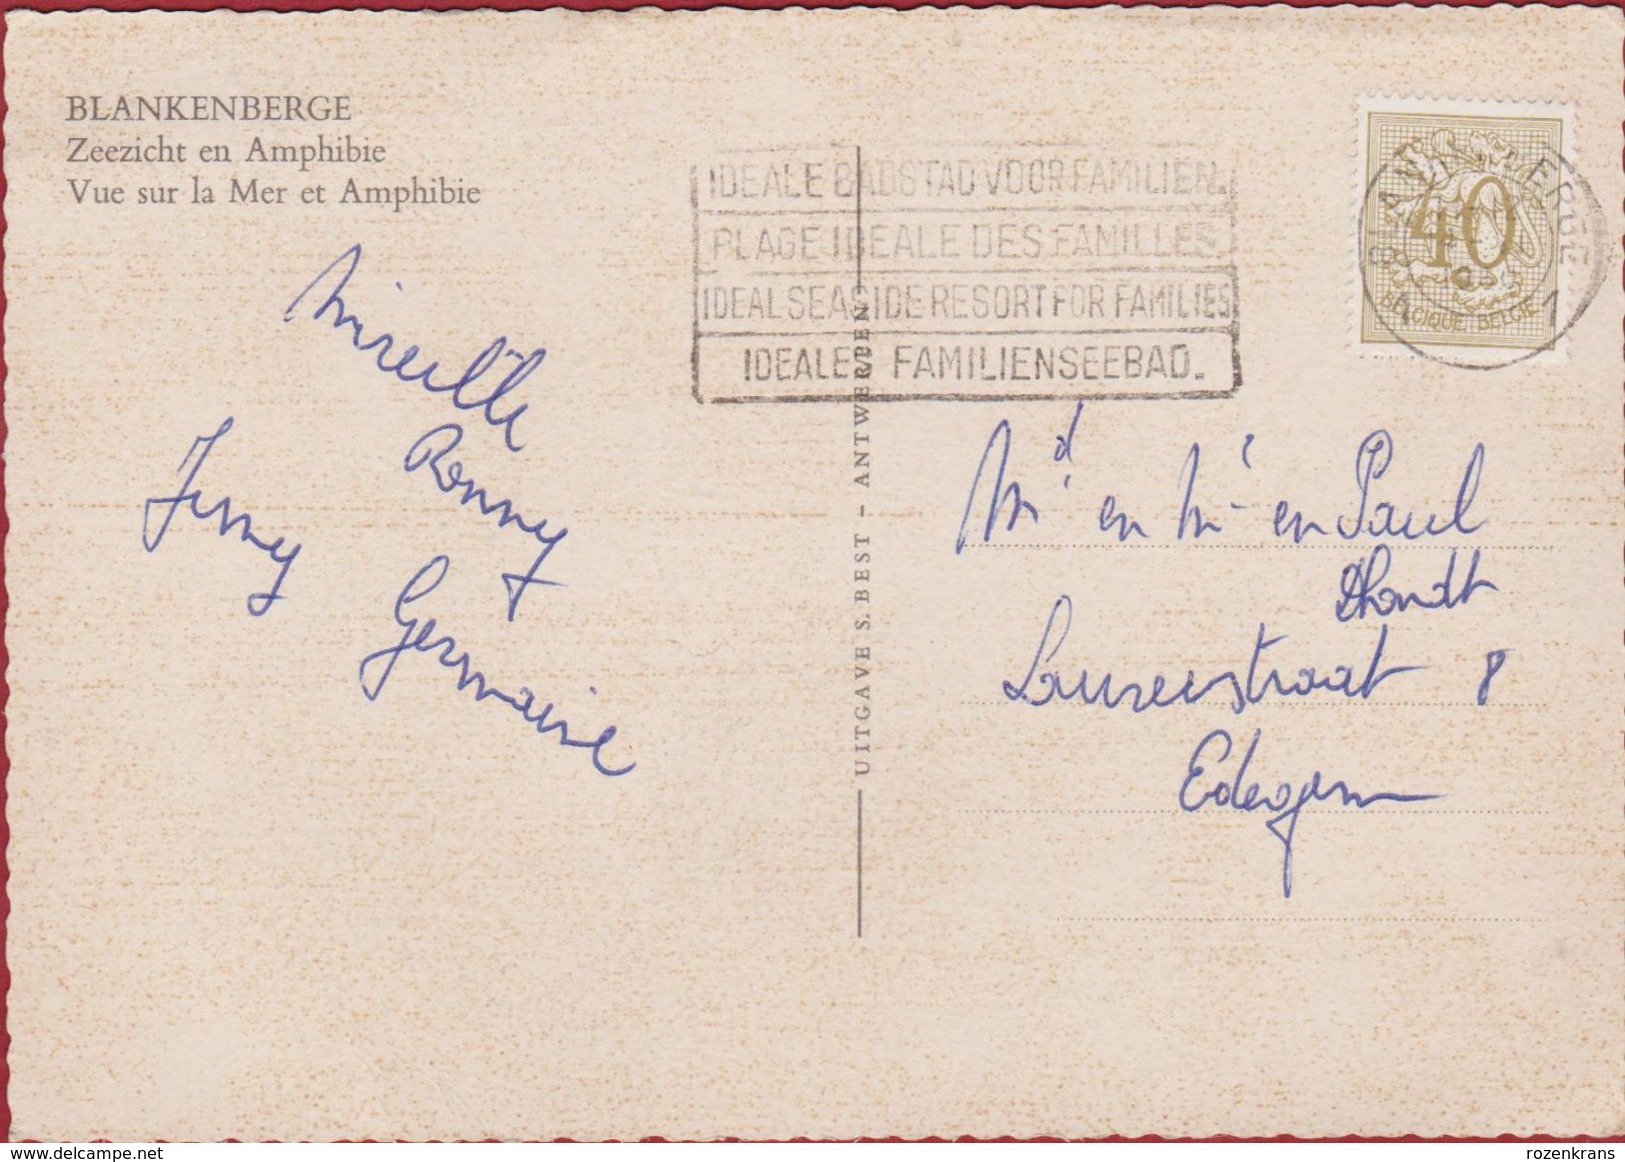 BLANKENBERGE
Zeezicht en Amphibie
Vue sur la Mer et Amphibie
IDEALE BADSTAD VOOR FAMILIEN.
PLAGE IDEALE DES FAMILLES.
IDEAL SEASIDE RESORT FOR FAMILIES
IDEALES FAMILIENSEEBAD.
40
BELGIQUE BELGIE
BLANKENBERGE
1 1
Mireille
Ronny
Jimmy
Germaine
UITGAVE S. BEST - ANTWERPEN
Md en Mr en Paul
Dhondt
straat 8
Edegem
rozenkrans